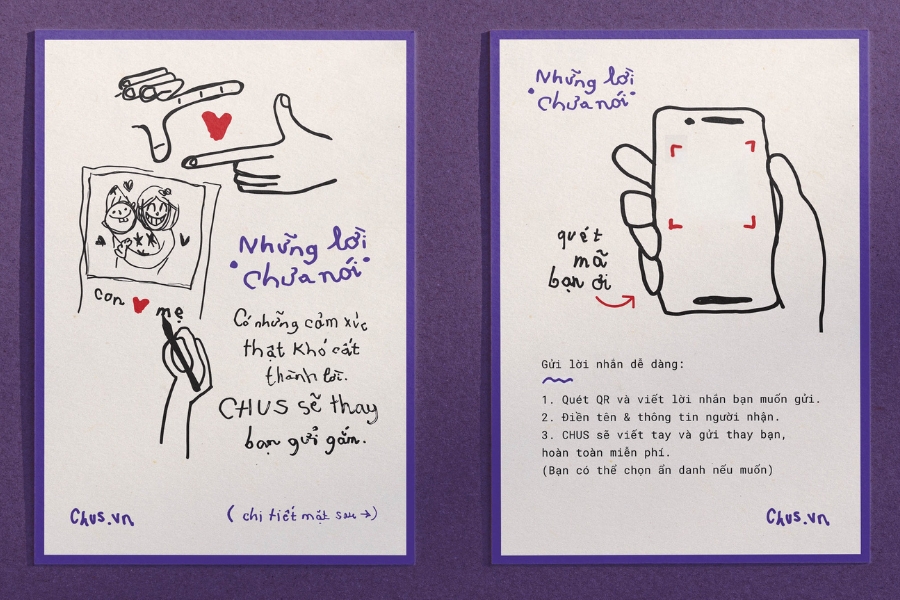 Những lời
"Chưa nói"
con mẹ
Có những cảm xúc
thật khó cất
thành lời.
CHUS sẽ thay
bạn gửi gắm.
Chus.vn
( chi tiết mặt sau → )
Những lời
"Chưa nói"
quét
mã
bạn ơi
Gửi lời nhắn dễ dàng:
1. Quét QR và viết lời nhắn bạn muốn gửi.
2. Điền tên & thông tin người nhận.
3. CHUS sẽ viết tay và gửi thay bạn,
hoàn toàn miễn phí.
(Bạn có thể chọn ẩn danh nếu muốn)
Chus.vn